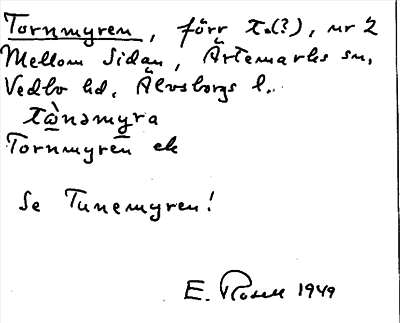 Tornmyren, förr t.(?), nr 2
Mellom Sidan, Ärtemarks sn,
Vedbo hd. Älvsborgs l.
tὼnəmyra
Tornmyren ek
Se Tunemyren!
E. Rosell 1949